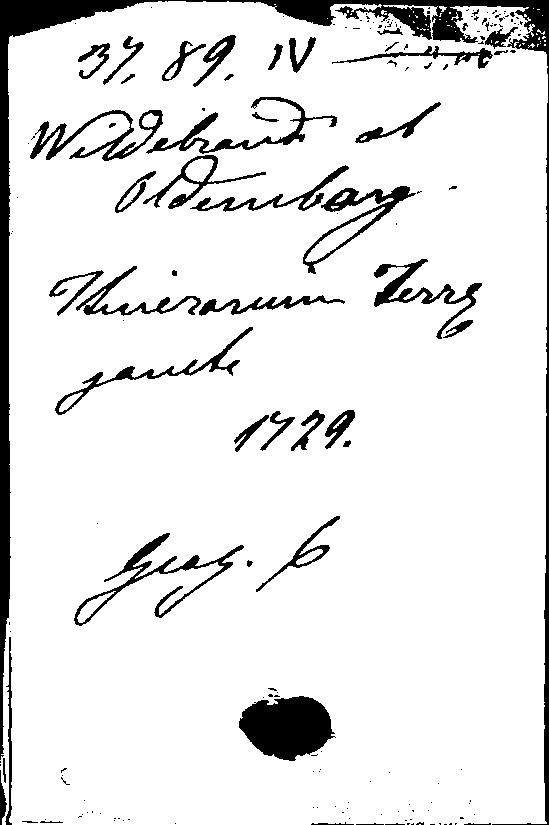 37, 89. IV
Wildebrand ab
Oldenburg.
Itinerarium Terrę
sancte
1729.
Geog. 6